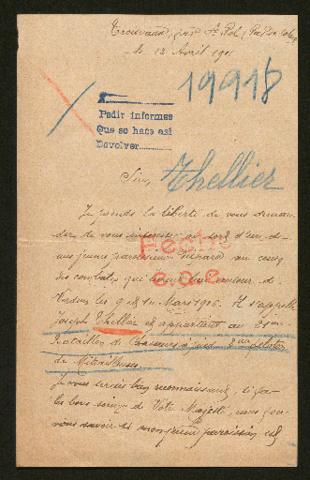 le 12 Avril 191
19918
Pedir informes
Que se hace asi
Devolver
Sire, Thellier
Je prends la liberté de vous deman-
der de vous intéresser au sort d'un de
mes jeunes paroissiens disparu au cours
Hecho
des combats qui autour de
c.o.e.
Verdun les 9 et 10 Mars 1916. Il s'appelle
Joseph Thellier et appartient au
bataillon de Chasseurs à pied, 2me peloton
de Mitrailleuses
Je vous serais bien reconnaissant, si par
les bons soins de Votre Majesté, nous pou-
vons savoir si mon jeune paroissien est